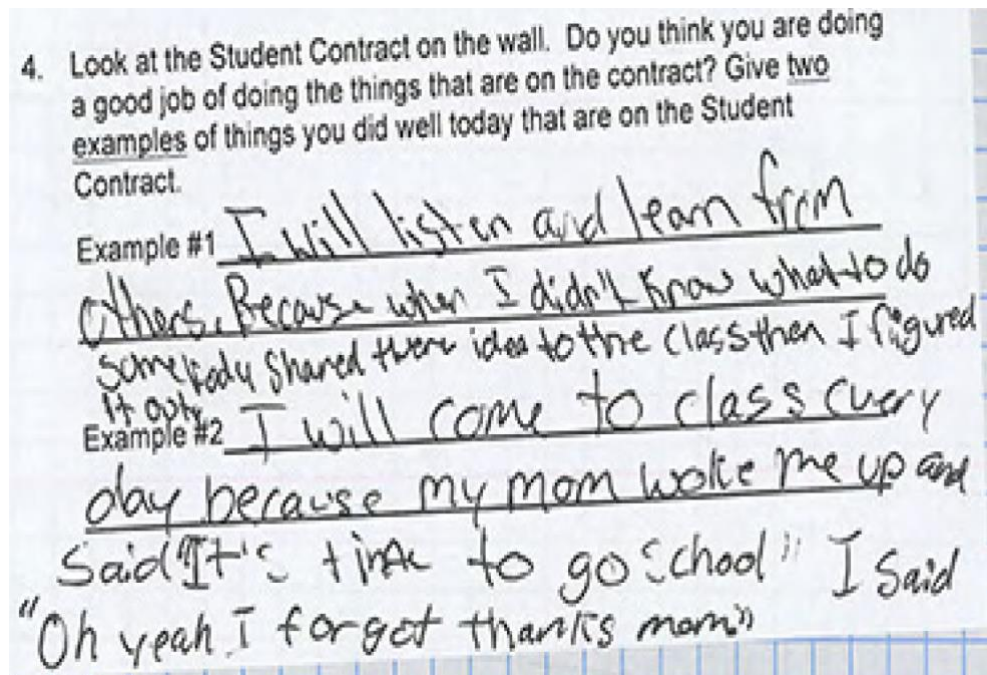 4. Look at the Student Contract on the wall. Do you think you are doing
a good job of doing the things that are on the contract? Give two
examples of things you did well today that are on the Student
Contract.
Example #1 I will listen and learn from
others. Because when I didn't know what to do
somebody shared there idea to the class then I figured
it out.
Example #2 I will come to class every
day because my mom woke me up and
said "It's time to go school" I said
"Oh yeah I forgot thanks mom"